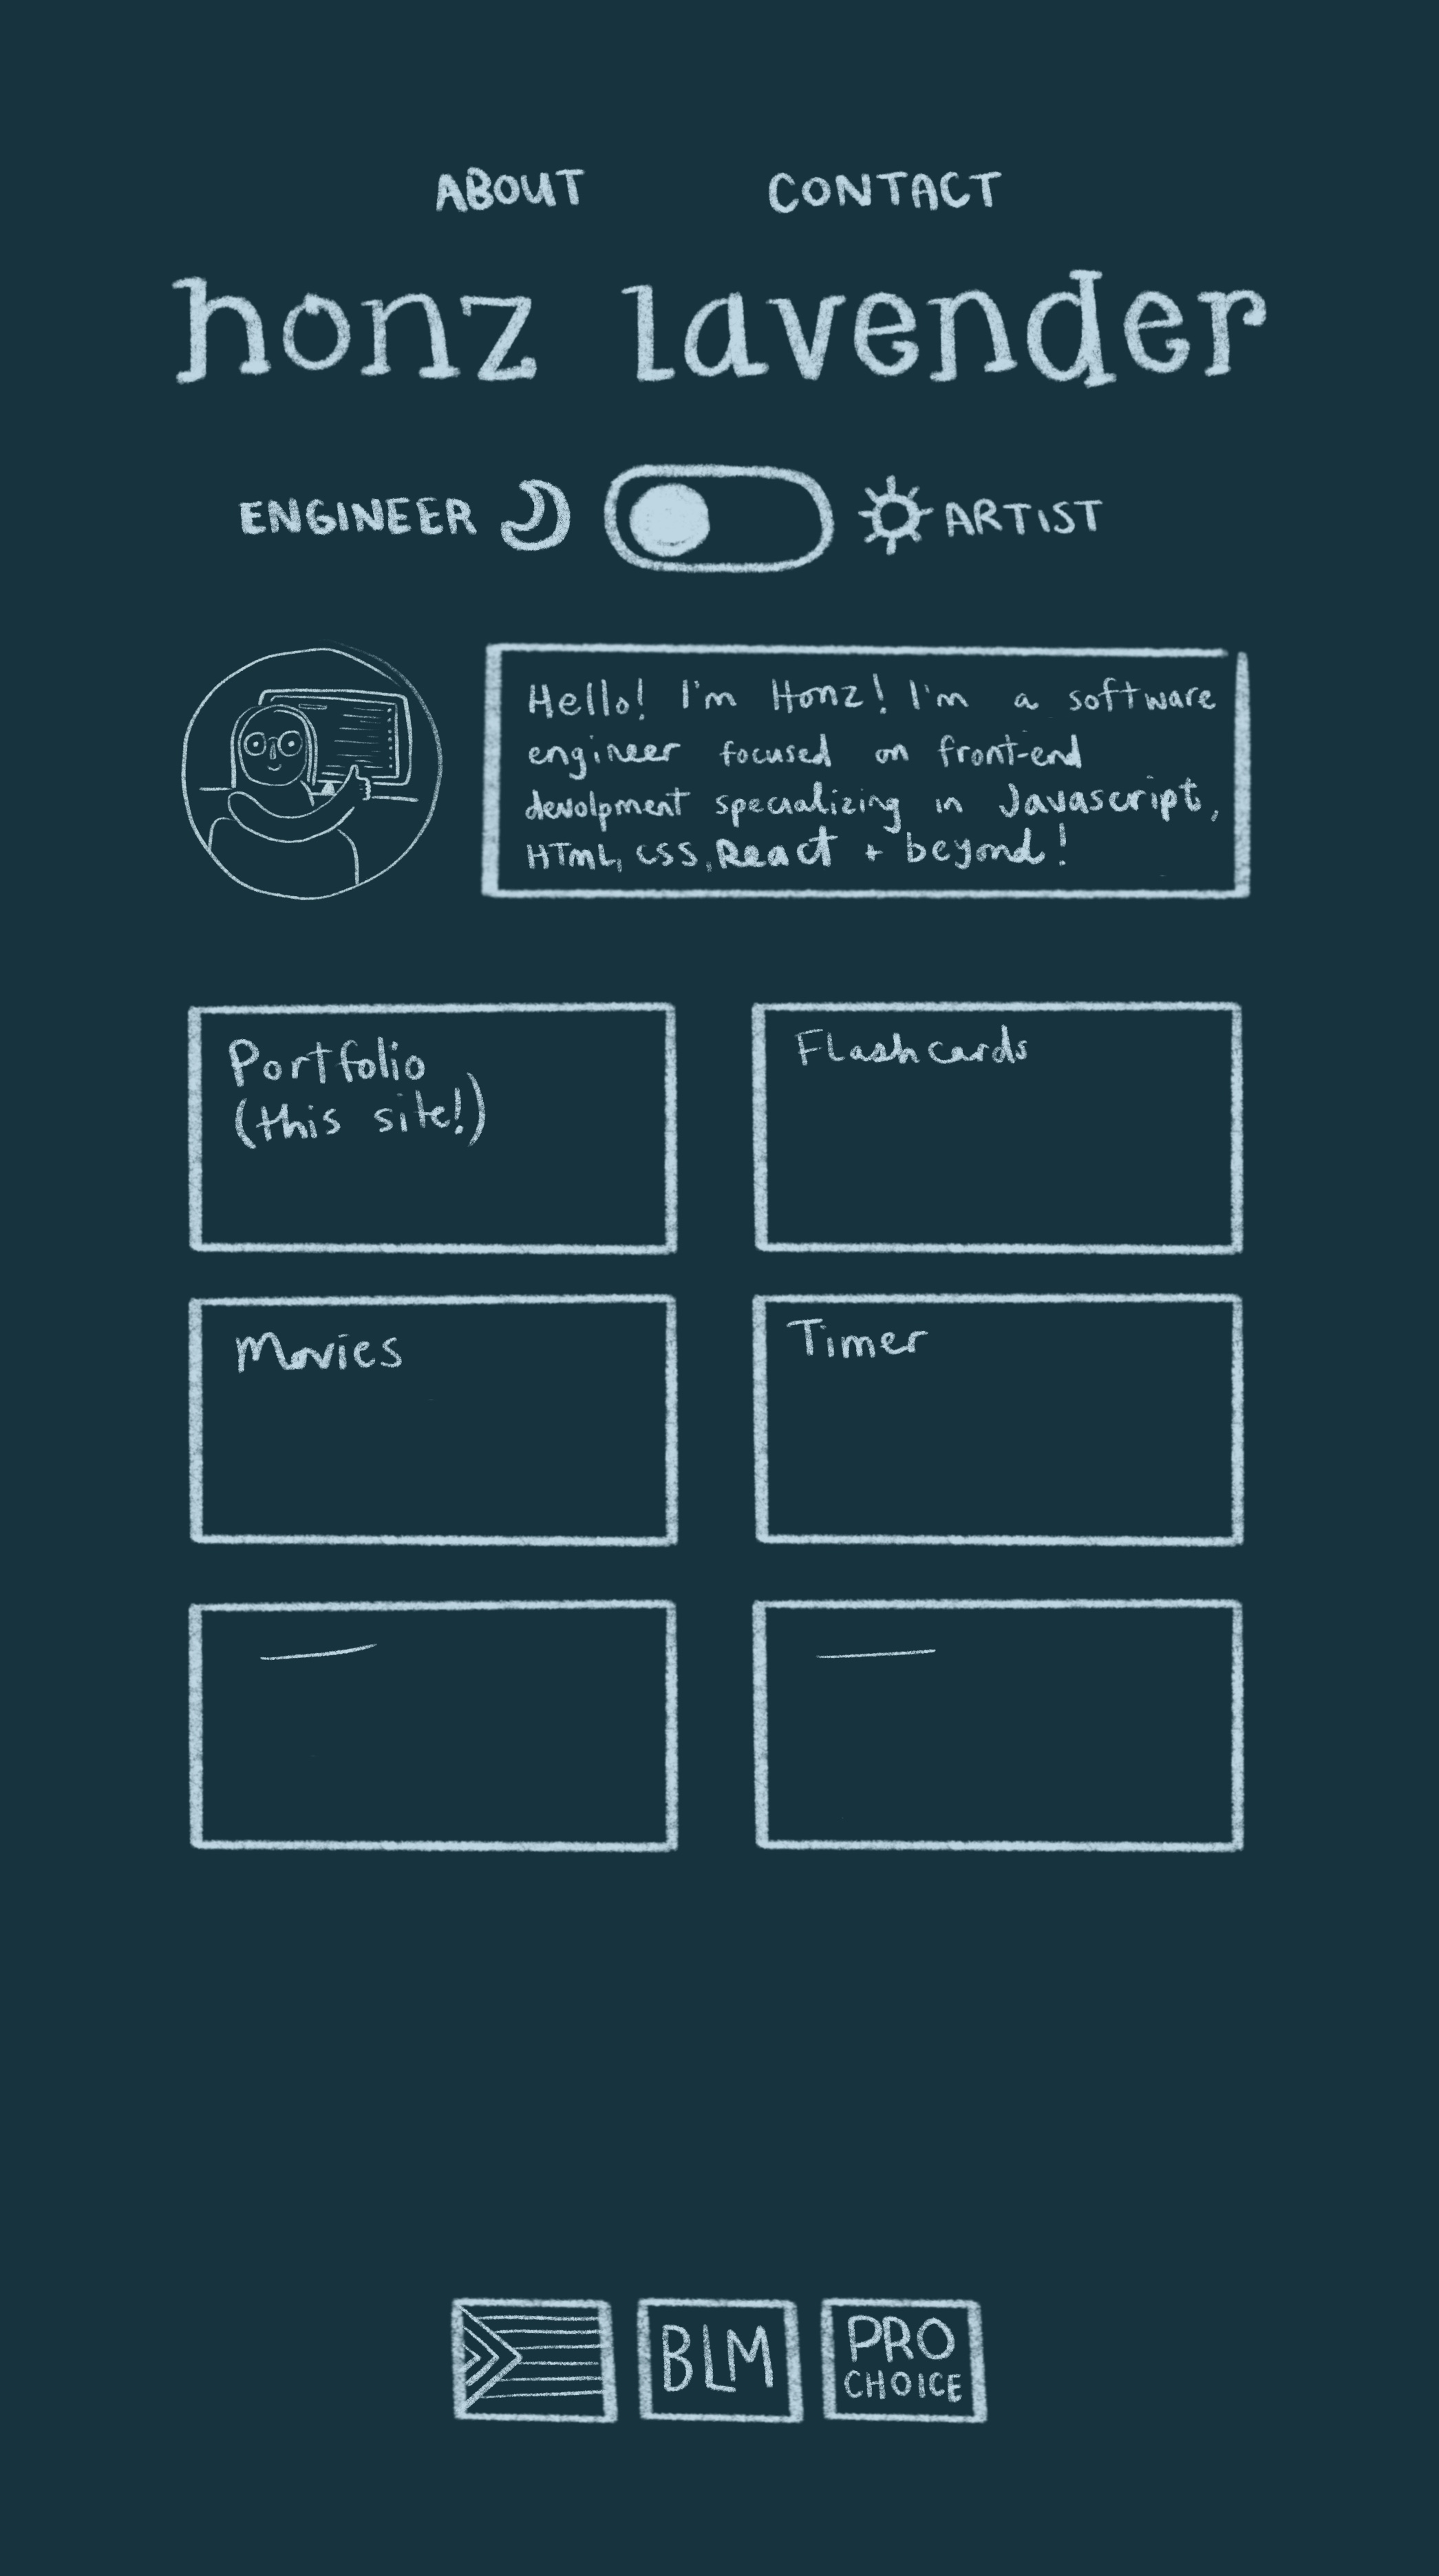 ABOUT CONTACT
honz lavender
ENGINEER ARTIST
Hello! I'm Honz! I'm a software
engineer focused on front-end
devolpment specializing in Javascript,
HTML, CSS, React + beyond!
Portfolio
(this site!)
Flashcards
Movies
Timer
BLM
PRO
CHOICE